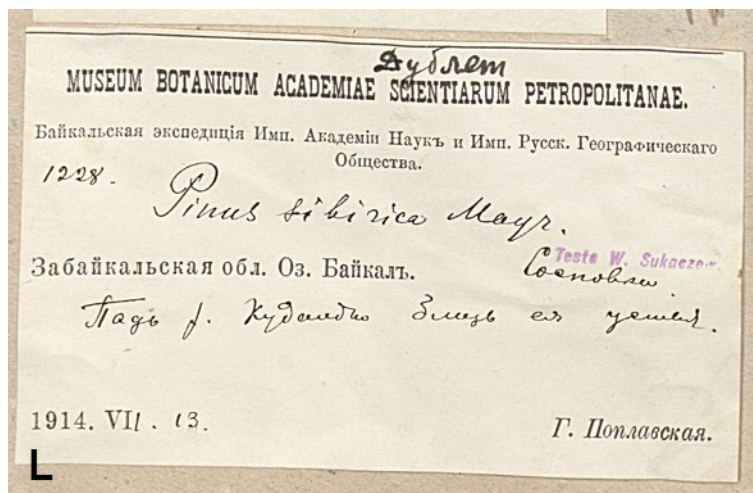 Дублет
MUSEUM BOTANICUM ACADEMIAE SCIENTIARUM PETROPOLITANAE.
Байкальская экспедиція Имп. Академіи Наукъ и Имп. Русск. Географическаго
Общества.
1228.
Pinus sibirica Mayr.
Teste W. Sukaczew.
Забайкальская обл. Оз. Байкалъ. Сосновка
Падь р. близь ея устья.
1914. VII. 13. Г. Поплавская.
L